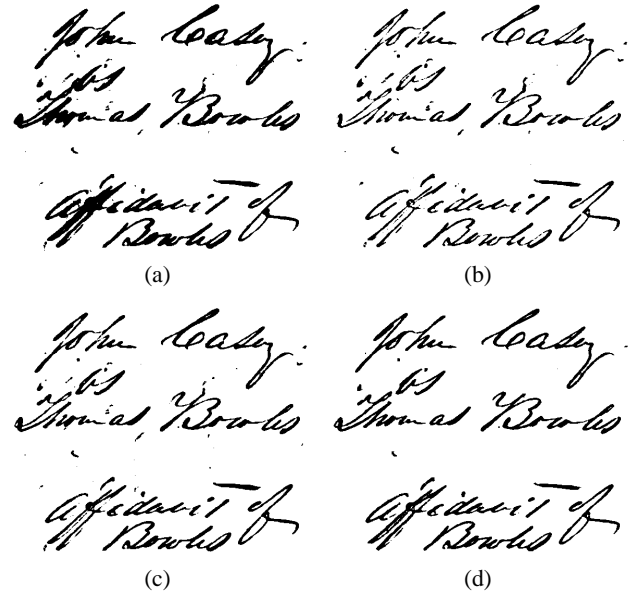 John Casey.
vs
Thomas Bowles
Affidavit of
Bowles
(a)
John Casey.
vs
Thomas Bowles
Affidavit of
Bowles
(b)
John Casey.
vs
Thomas Bowles
Affidavit of
Bowles
(c)
John Casey.
vs
Thomas Bowles
Affidavit of
Bowles
(d)